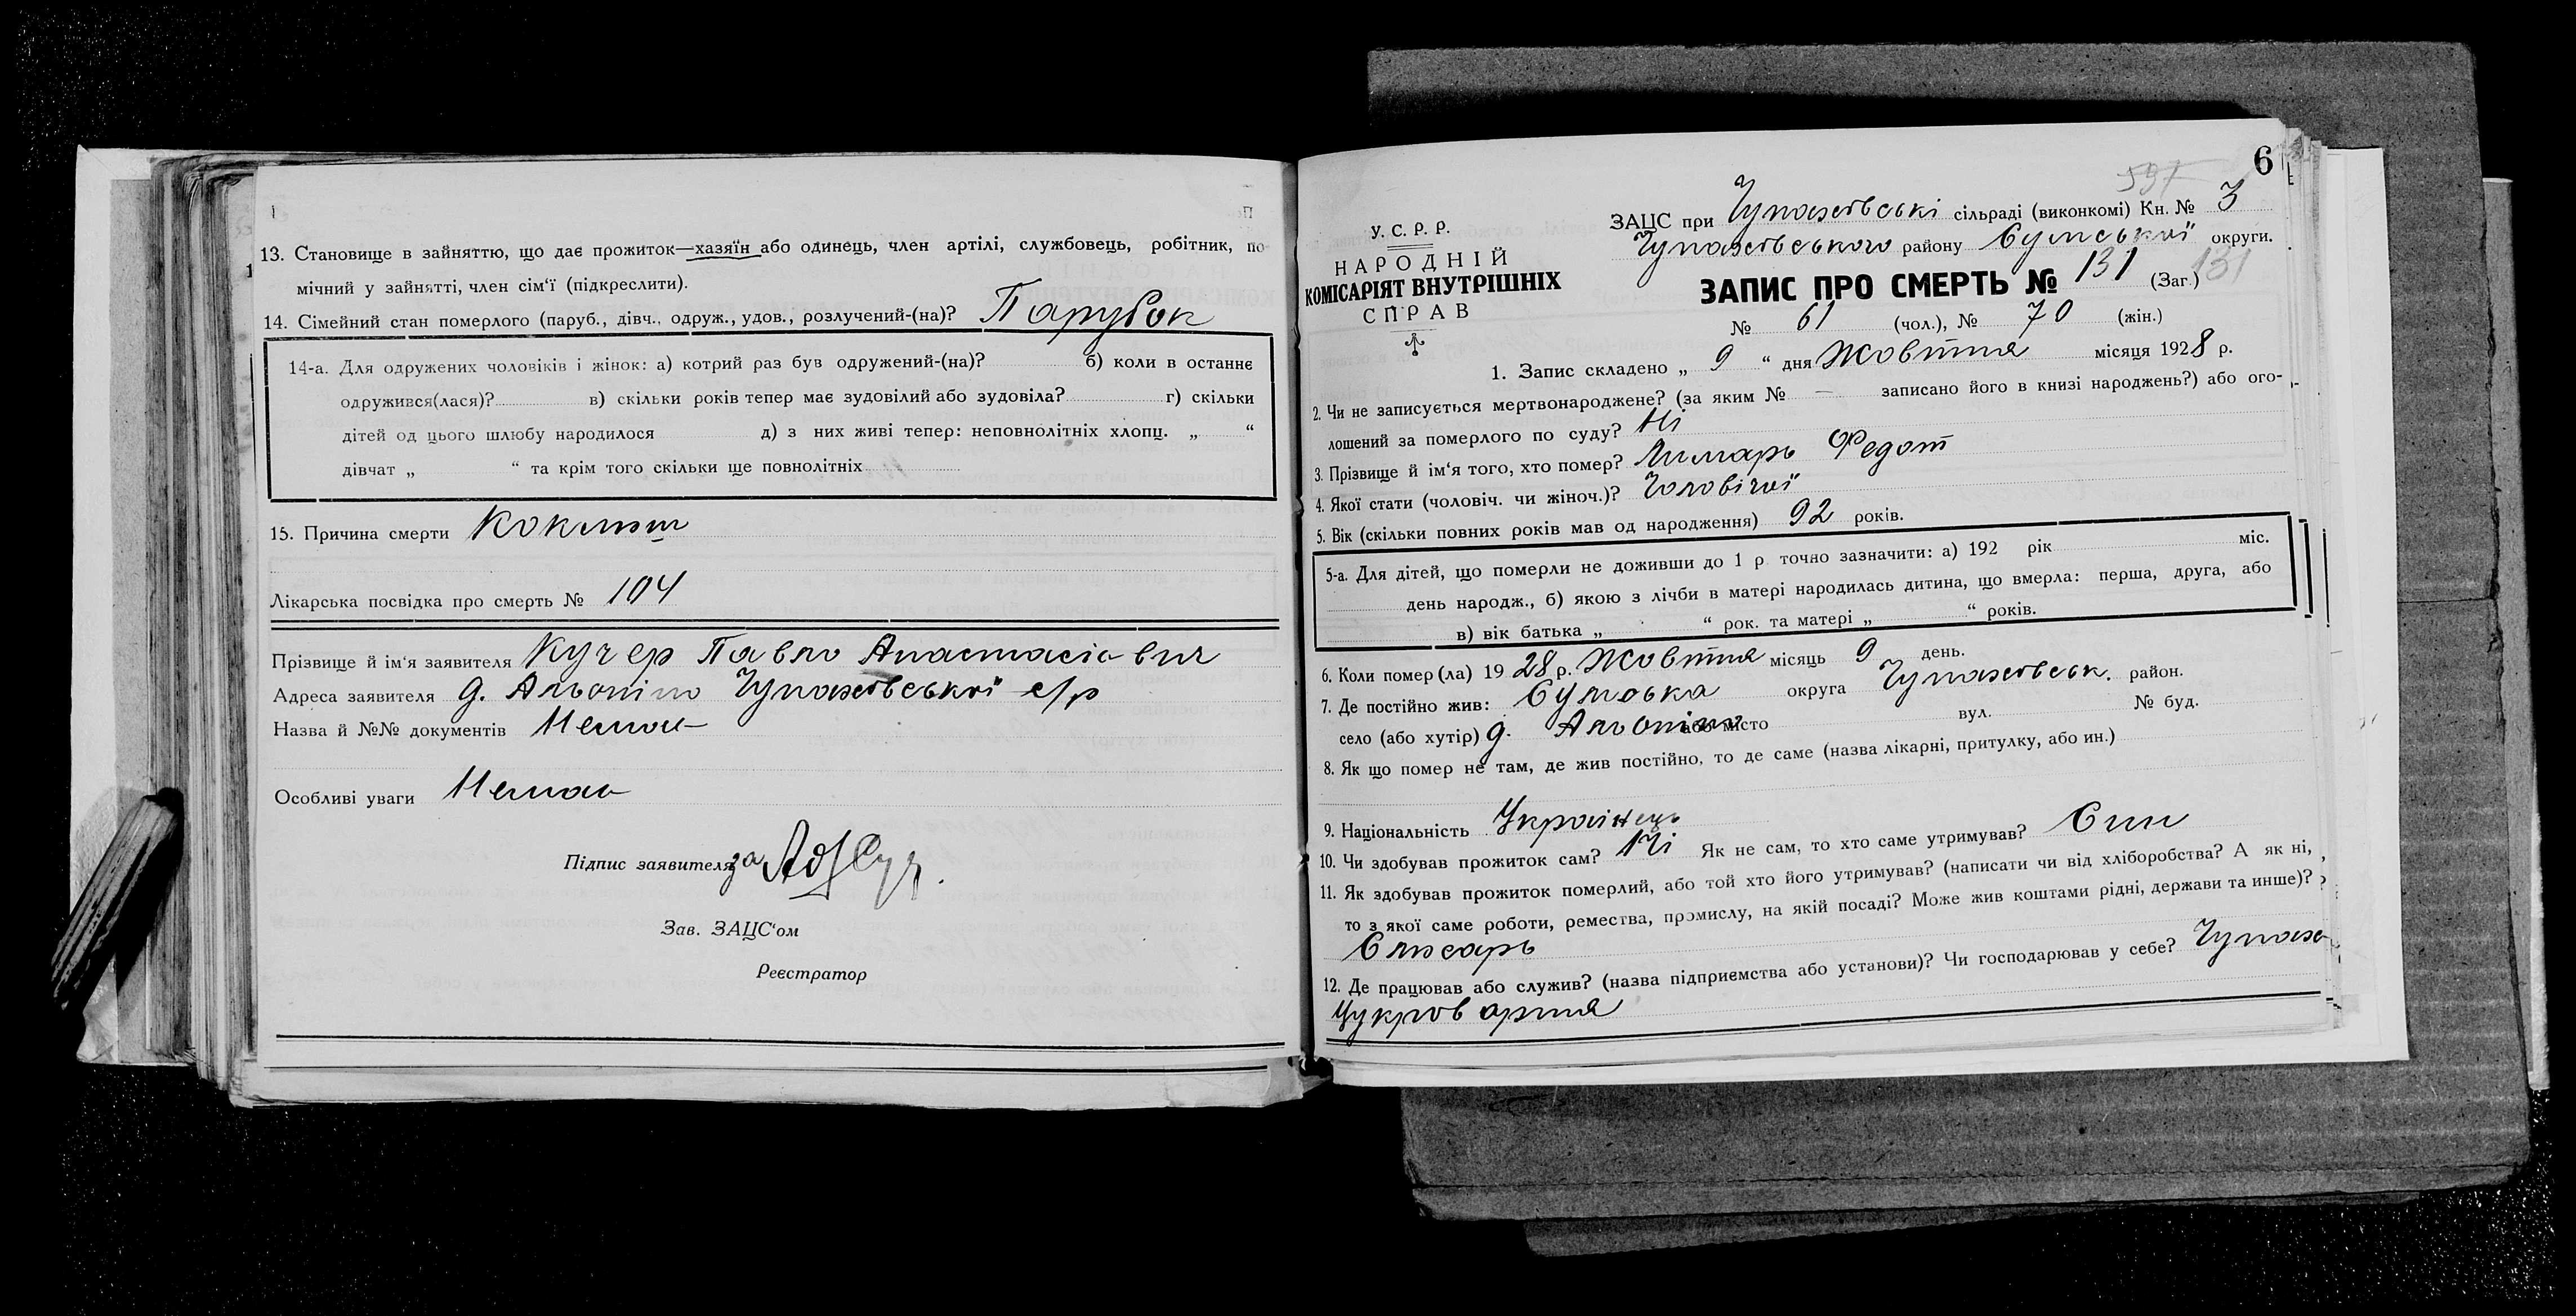 13. Становище в зайняттю, що дає прожиток—хазяїн або одинець, член артілі, службовець, робітник, по
мічний у зайнятті, член сім'ї (підкреслити).
14. Сімейний стан померлого (паруб., дівч., одруж., удов., розлучений-(на)? Парубок
14-а. Для одружених чоловіків і жінок: а) котрий раз був одружений-(на)? б) коли в останнє
одружився(лася)? в) скільки років тепер має зудовілий або зудовіла? г) скільки
дітей од цього шлюбу народилося д) з них живі тепер: неповнолітніх хлопц. „ “
дівчат „ “ та крім того скільки ще повнолітніх
15. Причина смерти Коклюш
Лікарська посвідка про смерть № 104
Прізвище й ім'я заявителя Кучер Павло Анастасієвич
Адреса заявителя д. Чупахівської с/р
Назва й №№ документів Немає
Особливі уваги Немає
Підпис заявителя за
Зав. ЗАЦС'ом
Реєстратор
6
У. С. Р. Р.
НАРОДНІЙ
КОМІСАРІЯТ ВНУТРІШНІХ
СПРАВ
ЗАЦС при Чупахівські сільраді (виконкомі) Кн. № 3
Чупахівського району Сумської округи.
ЗАПИС ПРО СМЕРТЬ № 131 (Заг.) 131
№ 61 (чол.), № 70 (жін.)
1. Запис складено „ 9 “ дня Жовтня місяця 1928 р.
2. Чи не записується мертвонароджене? (за яким № — записано його в книзі народжень?) або ого-
лошений за померлого по суду? Ні
3. Прізвище й ім'я того, хто помер? Лимарь Федот
4. Якої стати (чоловіч. чи жіноч.)? Чоловічої
5. Вік (скільки повних років мав од народження) 92 років.
5-а. Для дітей, що померли не доживши до 1 р точно зазначити: а) 192 рік міс.
день народж., б) якою з лічби в матері народилась дитина, що вмерла: перша, друга, або
в) вік батька „ “ рок. та матері „ “ років.
6. Коли помер (ла) 1928 р. Жовтня місяць 9 день.
7. Де постійно жив: Сумська округа Чупахівськ. район.
село (або хутір) д. або місто вул. № буд.
8. Як що помер не там, де жив постійно, то де саме (назва лікарні, притулку, або ин.)
9. Національність Українець
10. Чи здобував прожиток сам? Ні Як не сам, то хто саме утримував? Син
11. Як здобував прожиток померлий, або той хто його утримував? (написати чи від хліборобства? А як ні,
то з якої саме роботи, ремества, промислу, на якій посаді? Може жив коштами рідні, держави та инше)?
Слюсарь
12. Де працював або служив? (назва підприємства або установи)? Чи господарював у себе? Чупахі
Цукроварня